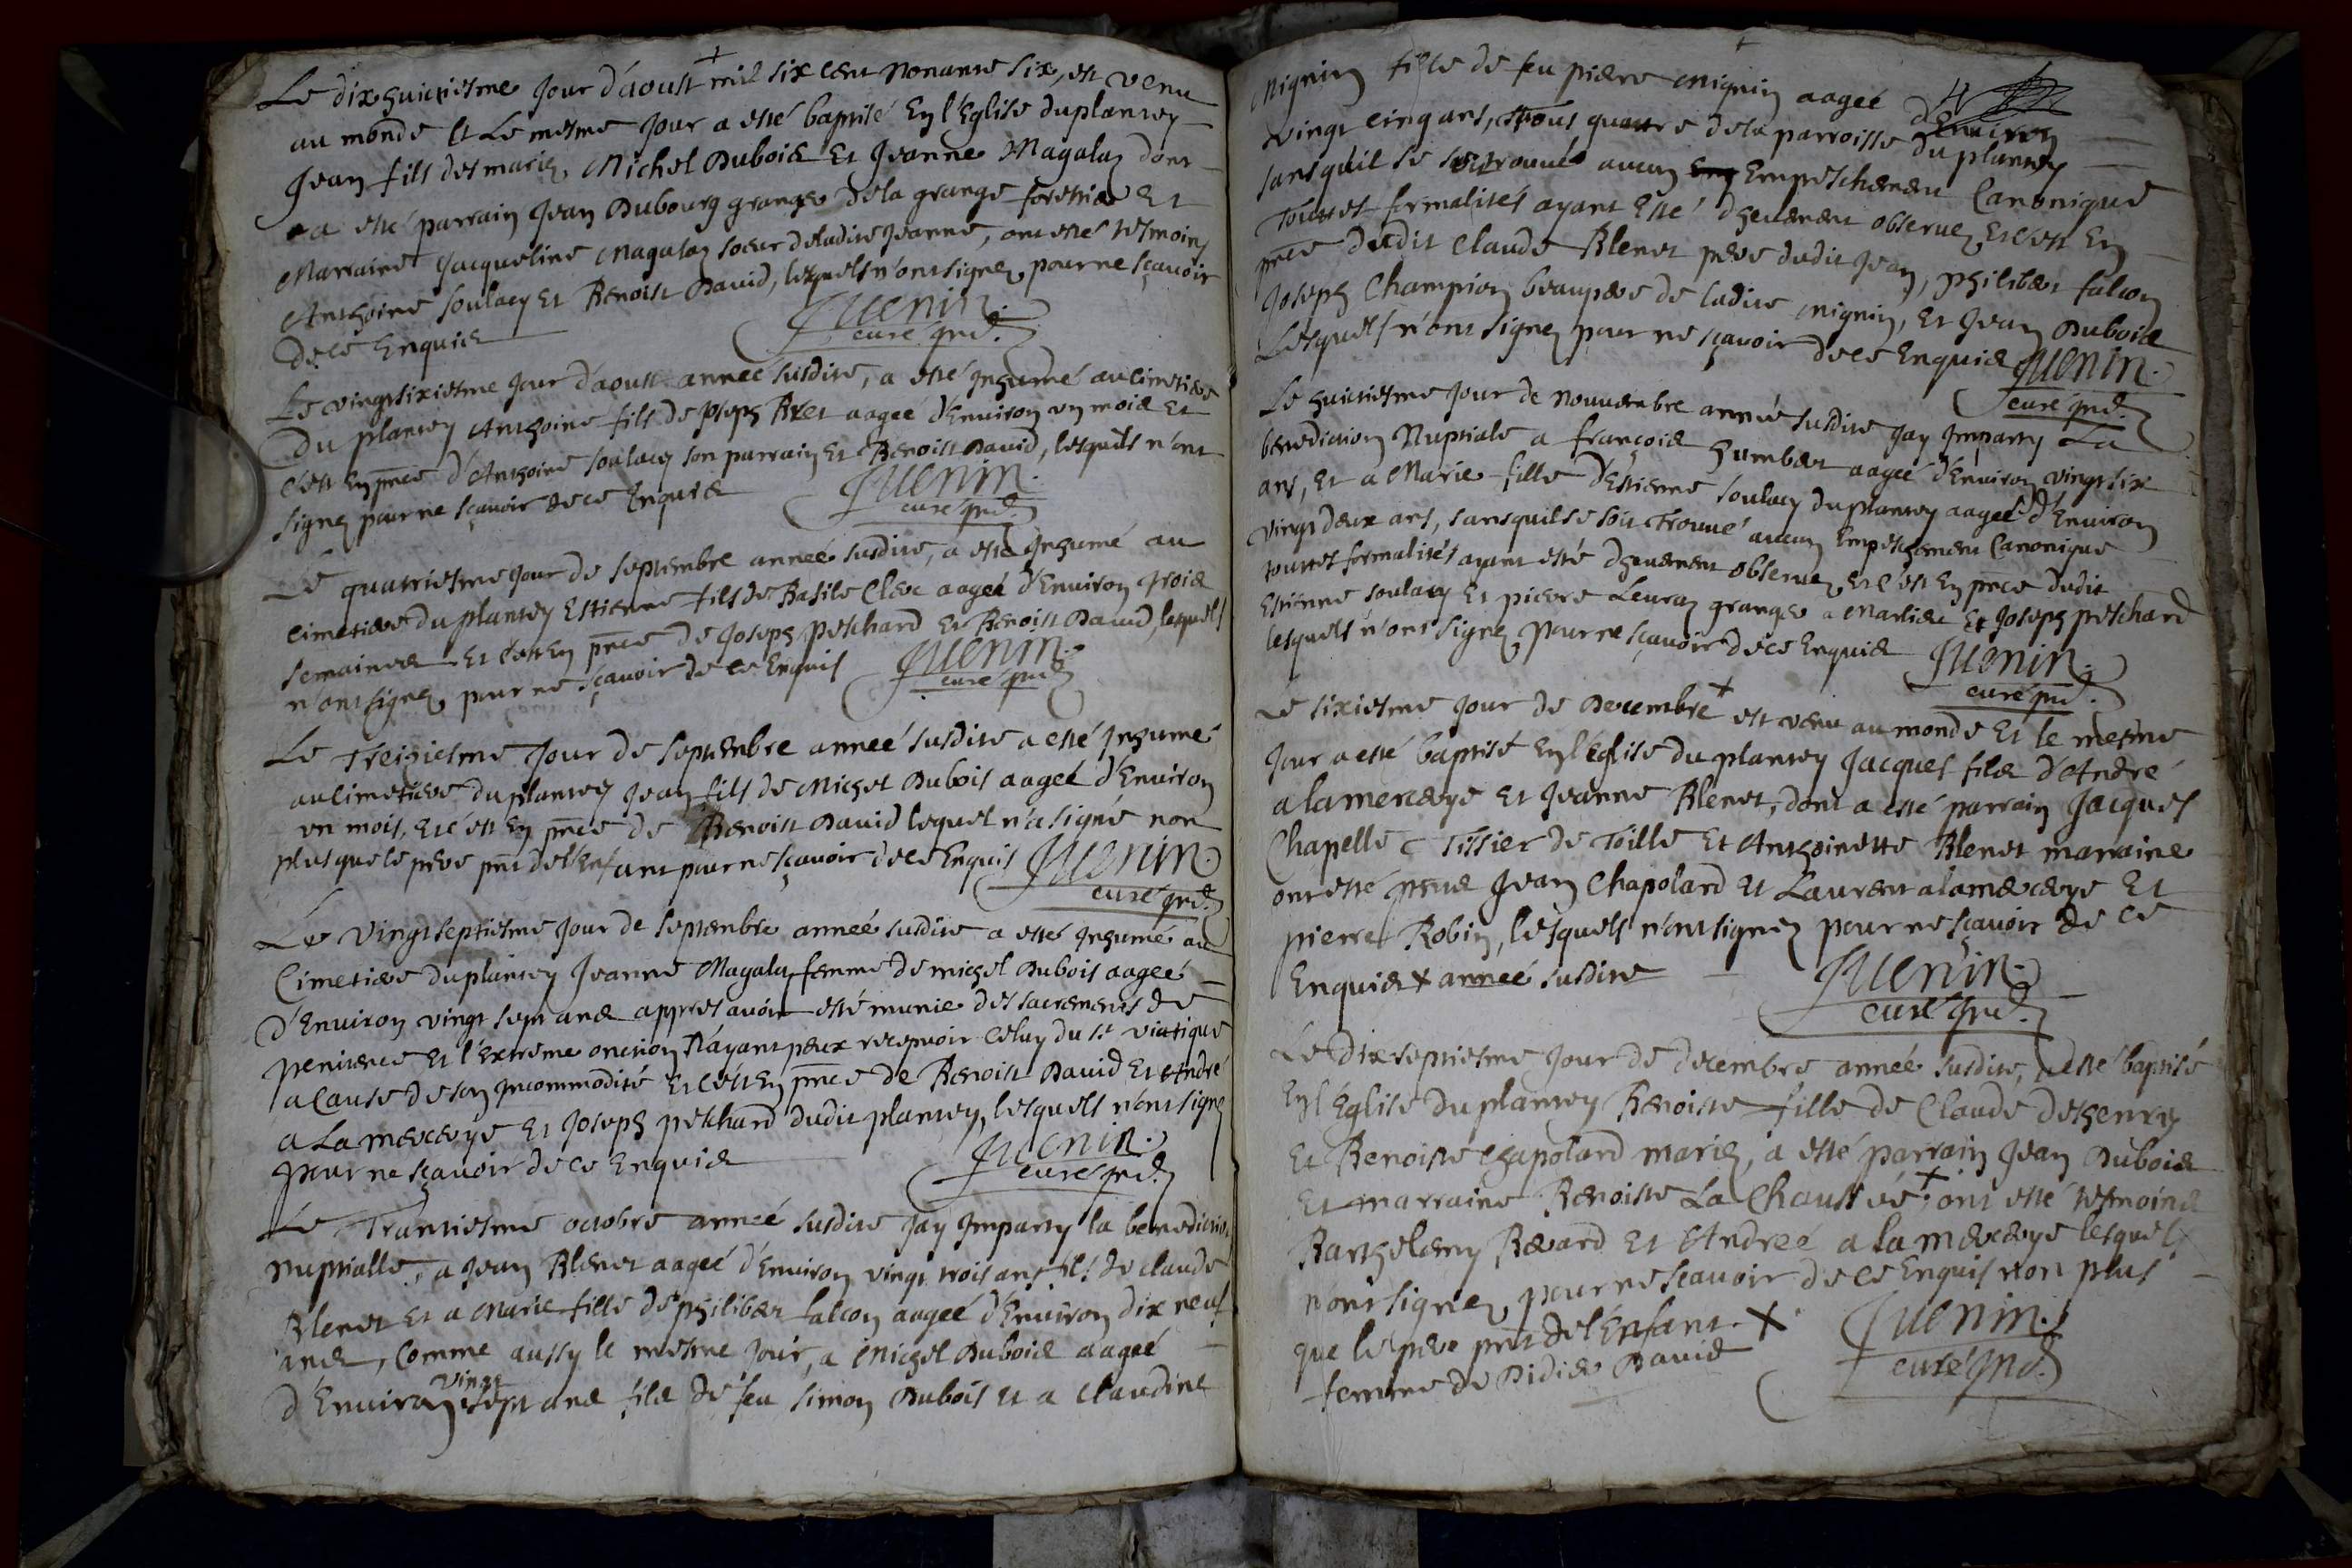 Le dixhuictiesme Jour d'aoust mil six cent nonante six, est venu
au monde et Le mesme Jour a esté baptisé En l'Eglise du plantey
Jean fils des mariez Michel Dubois Et Jeanne Magalay dont
a esté parrain Jean Dubourg granger de la grange forestier Et
Marraine Jacqueline Magalay soeur deladite Jeanne, ont esté tesmoins
Anthoine soulacy Et Benoist David, lesquels n'ont signez pour ne sçavoir
de ce Enquis
Juenin
curé prnt.
Le vingtsixiesme Jour d'aoust anneé susdite, a esté Inhumé au cimetiere
Du plantey Anthoine fils de Joseph aageé d'Environ un mois Et
c'est En pnce d'Anthoine soulacy son parrain Et Benoist David, lesquels n'ont
signez pour ne sçavoir de ce Enquis
Juenin
curé prnt.
Le quatriesme Jour de septembre anneé susdite, a esté Inhumé au
cimetiere du plantey Estienne fils de Basile Clerc aageé d'Environ trois
semaines Et c'est En pnce de Joseph peschard Et Benoist David, lesquels
n'ont signez pour ne sçavoir de ce Enquis
Juenin
curé prnt.
Le Treiziesme Jour de septembre anneé susdite a esté Inhumé
au Cimetiere du plantey Jean fils de Michel Dubois aageé d'Environ
un mois, Et c'est En pnce de Benoist David lequel n'a signé non
plus que le pere pnt de l'Enfant pour ne sçavoir de ce Enquis
Juenin
curé prnt.
Le Vingtseptiesme Jour de septembre anneé susdite a esté Inhumé au
Cimetiere du plantey Jeanne Magalay femme de michel Dubois aageé
d'Environ vingt sept ans appres avoir esté munie des sacrements de
penitence Et l'Extreme onction N'ayant peux recepvoir Celuy du st viatique
a Cause de son Incommodité Et c'est En pnce de Benoist David Et André
a La mercerye Et Joseph peschard dudit plantey, lesquels n'ont signé
pour ne sçavoir de ce Enquis
Juenin
curé prnt.
Le Trantiesme octobre anneé susdite Jay Imparty la benediction
Nuptialle, a Jean Blenet aageé d'Environ vingt trois ans fils de claude
Blenet Et a Marie fille de philibert falcon aageé d'Environ dix neuf
ans, Comme aussy le mesme Jour, a Michel Dubois aageé
d'Environ vingt sept ans fils de feu simon Dubois Et a Claudine
Mignin fille de feu pierre Mignin aageé d'Environ
vingt cinq ans, Tous quattre de la parroisse du plantey
sans qu'il se soit trouvé aucun Empeschement Canonique
Touttes formalités ayant Esté dheuement observez Et c'est En
pnce dudit Claude Blenet pere dudit Jean, philibert falcon
Joseph Champion beaupere de ladite Mignin, Et Jean Dubois
Lesquels n'ont signez pour ne sçavoir de ce Enquis
Juenin
curé prnt.
Le huictiesme Jour de Nouvembre anneé susdite Jay Imparty La
benediction Nuptiale a françois humbert aageé d'Environ vingt six
ans, Et a Marie fille d'Estienne soulacy du plantey aageé d'Environ
vingt deux ans, sans quil se soit Trouvé aucun Empeschement Canonique
touttes formalités ayant esté dheuement observez Et c'est En pnce dudit
Estienne soulacy Et pierre Leuraz granger a Marlier Et Joseph peschard
lesquels n'ont signez pour ne sçavoir de ce Enquis
Juenin
curé prnt.
Le sixiesme Jour de Decembre + est venu au monde Et le mesme
Jour a esté baptisé En l'Eglise du plantey Jacques fils d'André
a lamercerye Et Jeanne Blenet, dont a esté parrain Jacques
Chapelle Tissier de Toille Et Anthoinette Blenet marraine
ont esté pnts Jean Chapolard Et Laurent alamercerye Et
pierre Robin, lesquels n'ont signez pour ne sçavoir de ce
Enquis + anneé susdite
Juenin
curé prnt.
Le dixseptiesme Jour de decembre anneé susdite, a esté baptisé
En l'Eglise du plantey Benoiste fille de Claude deshenry
Et Benoiste Chapolard mariez, a esté parrain Jean Dubois
Et marraine Benoiste La Chausseé + ont esté tesmoins
Barthelemy Berard Et Andreé a la mercerye lesquels
n'ont signez pour ne scavoir de ce Enquis non plus
que le pere pnt de l'Enfant. +
femme de Didier David
Juenin
curé prnt.